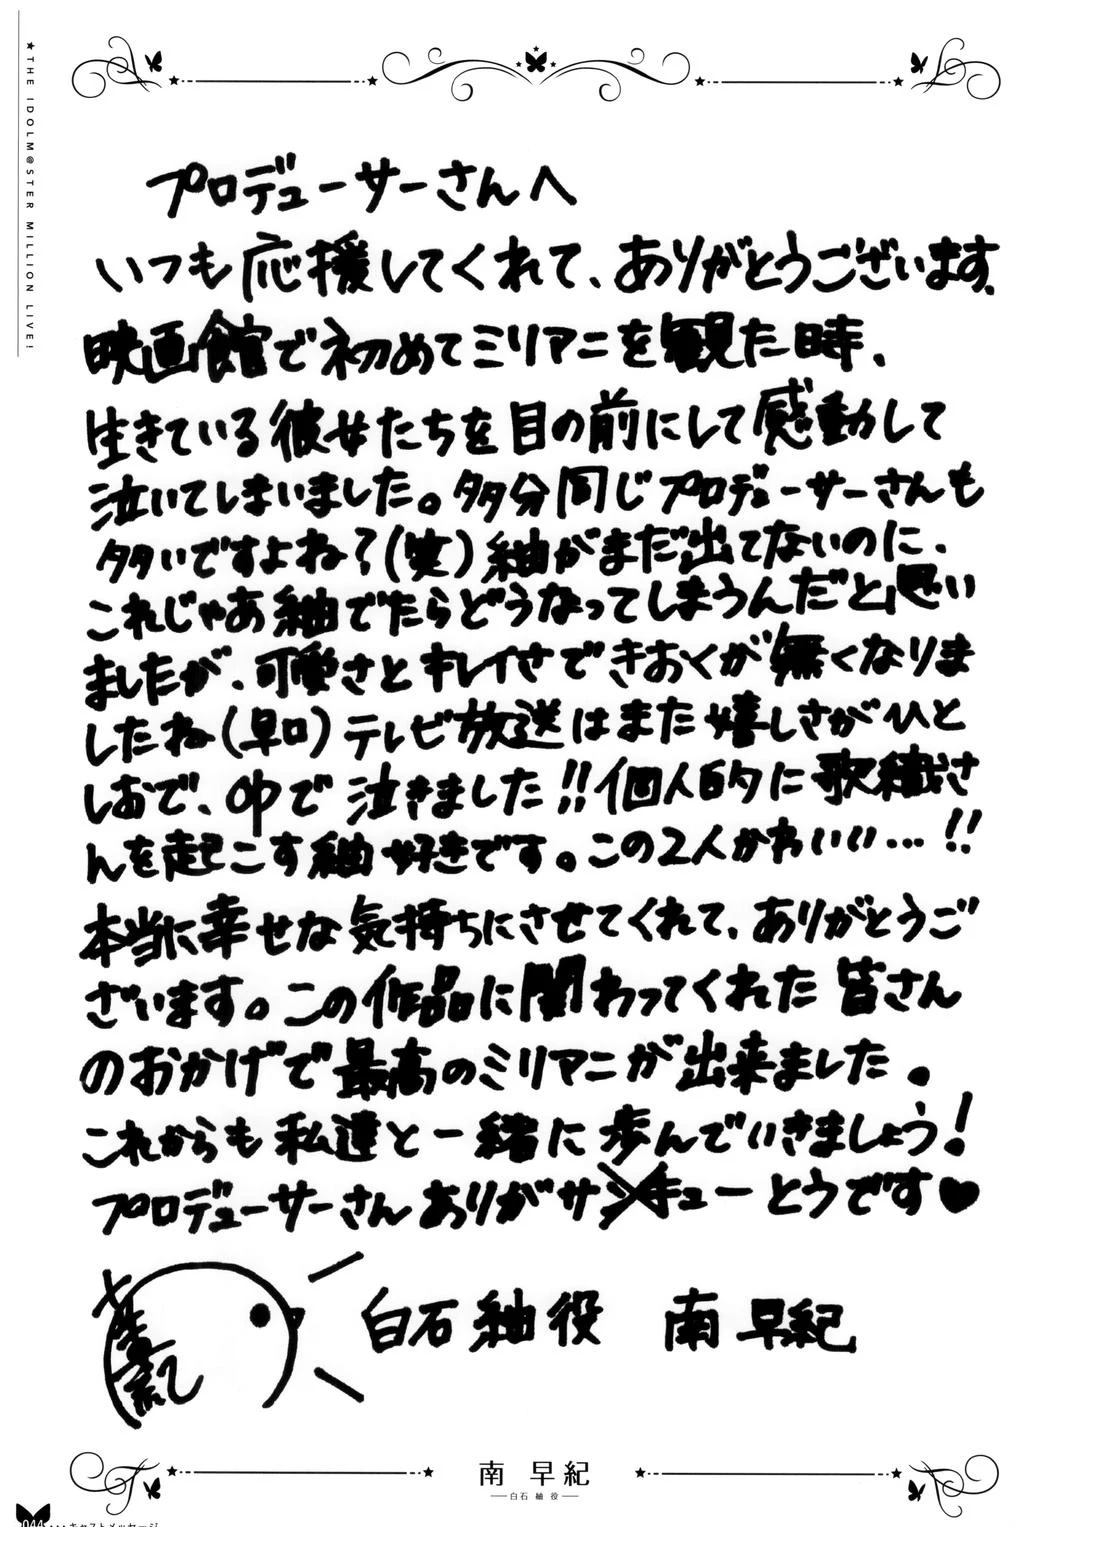 ★THE IDOLM@STER MILLION LIVE!
プロデューサーさんへ
いつも応援してくれて、ありがとうございます。
映画館で初めてミリアニを観た時、
生きている彼女たちを目の前にして感動して
泣いてしまいました。多分同じプロデューサーさんも
多いですよね?(笑)紬がまだ出てないのに、
これじゃあ紬でたらどうなってしまうんだと思い
ましたが、可愛さとキレイさできおくが無くなりま
したね(早口)テレビ放送はまた嬉しさがひと
しおで、中で泣きました!!個人的に歌織さ
んを起こす紬好きです。この2人かわいい…!!
本当に幸せな気持ちにさせてくれて、ありがとうご
ざいます。この作品に関わってくれた皆さん
のおかげで最高のミリアニが出来ました。
これからも私達と一緒に歩んでいきましょう!
プロデューサーさんありがサンキューとうです♥
早紀
白石紬役 南早紀
南 早紀
白石 紬 役
044 ・・・キャストメッセージ